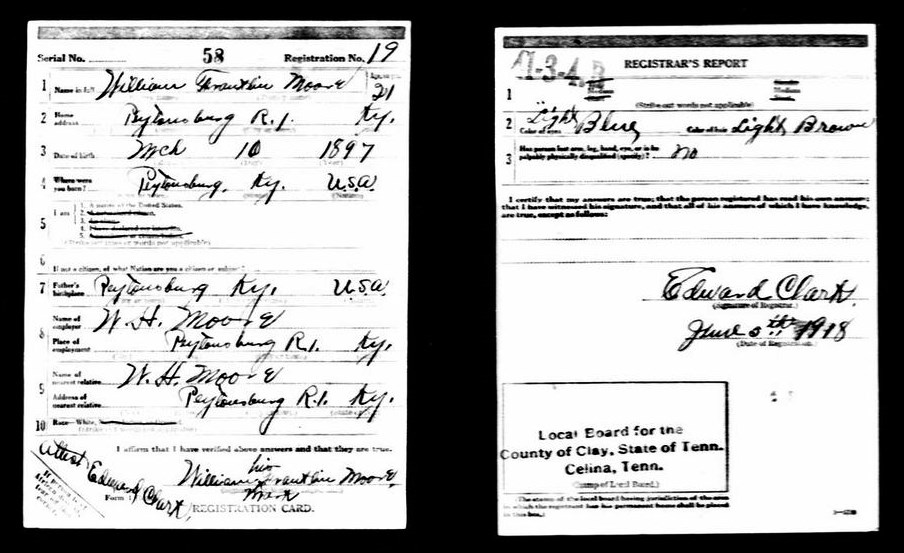 Serial No. 58 Registration No. 19
1 Name in full William Franklin Moore 21
2 Home address Peytonsburg R.1. Ky.
3 Date of birth Mch 10 1897
4 Where were you born? Peytonsburg, Ky. U.S.A.
5 I am
1. A native of the United States.
2.
3.
4. I have declared my intention
5.
(Strike out lines or words not applicable)
6 If not a citizen, of what Nation are you a citizen or subject?
7 Father's birthplace Peytonsburg Ky. U.S.A.
8 Name of employer W. H. Moore
Place of employment Peytonsburg R.1. Ky.
9 Name of nearest relative W. H. Moore
Address of nearest relative Peytonsburg R.1. Ky.
10 Race—White,
I affirm that I have verified above answers and that they are true.
Attest his
Edward Clark William Franklin Moore
mark
Form 1 REGISTRATION CARD.
If person is
REGISTRAR'S REPORT
1 Medium
(Strike out words not applicable)
2 Color of eyes Light Blue Color of hair Light Brown
3 Has person lost arm, leg, hand, eye, or is he palpably physically disqualified (specify)? No
I certify that my answers are true; that the person registered has read his own answers;
that I have witnessed his signature, and that all of his answers of which I have knowledge,
are true, except as follows:
Edward Clark
(Signature of Registrar.)
June 5th 1918
(Date of Registration.)
Local Board for the
County of Clay, State of Tenn.
Celina, Tenn.
(Stamp of Local Board.)
(The stamp of the local board having jurisdiction of the area
in which the registrant has his permanent home shall be placed
in this box.)